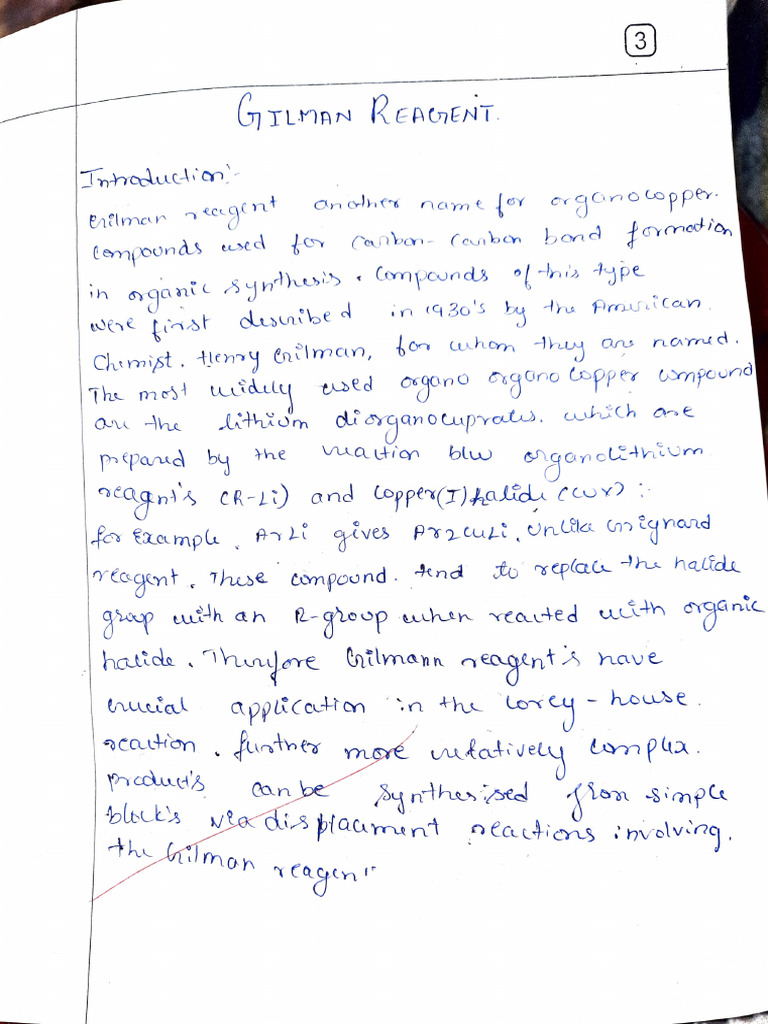 3
GILMAN REAGENT.
Introduction:-
Gilman reagent another name for organocopper.
compounds used for carbon-carbon bond formation
in organic synthesis. Compounds of this type
were first described in 1930's by the American.
Chemist. Henry Gilman, for whom they are named.
The most widely used organo organo copper compound
are the lithium diorganocuprates. which are
prepared by the reaction b/w organolithium
reagnt's (R-Li) and Copper(I) halide (CuX) :-
for Example, ArLi gives Ar2CuLi. Unlike Grignard
reagent. These compound. tend to replace the halide
group with an R-group when reacted with organic
halide. Therefore Gilmann reagent's have
crucial application in the Corey-house.
reaction. further more relatively complex.
product's can be synthesised from simple
block's via displacment reactions involving.
the Gilman reagent